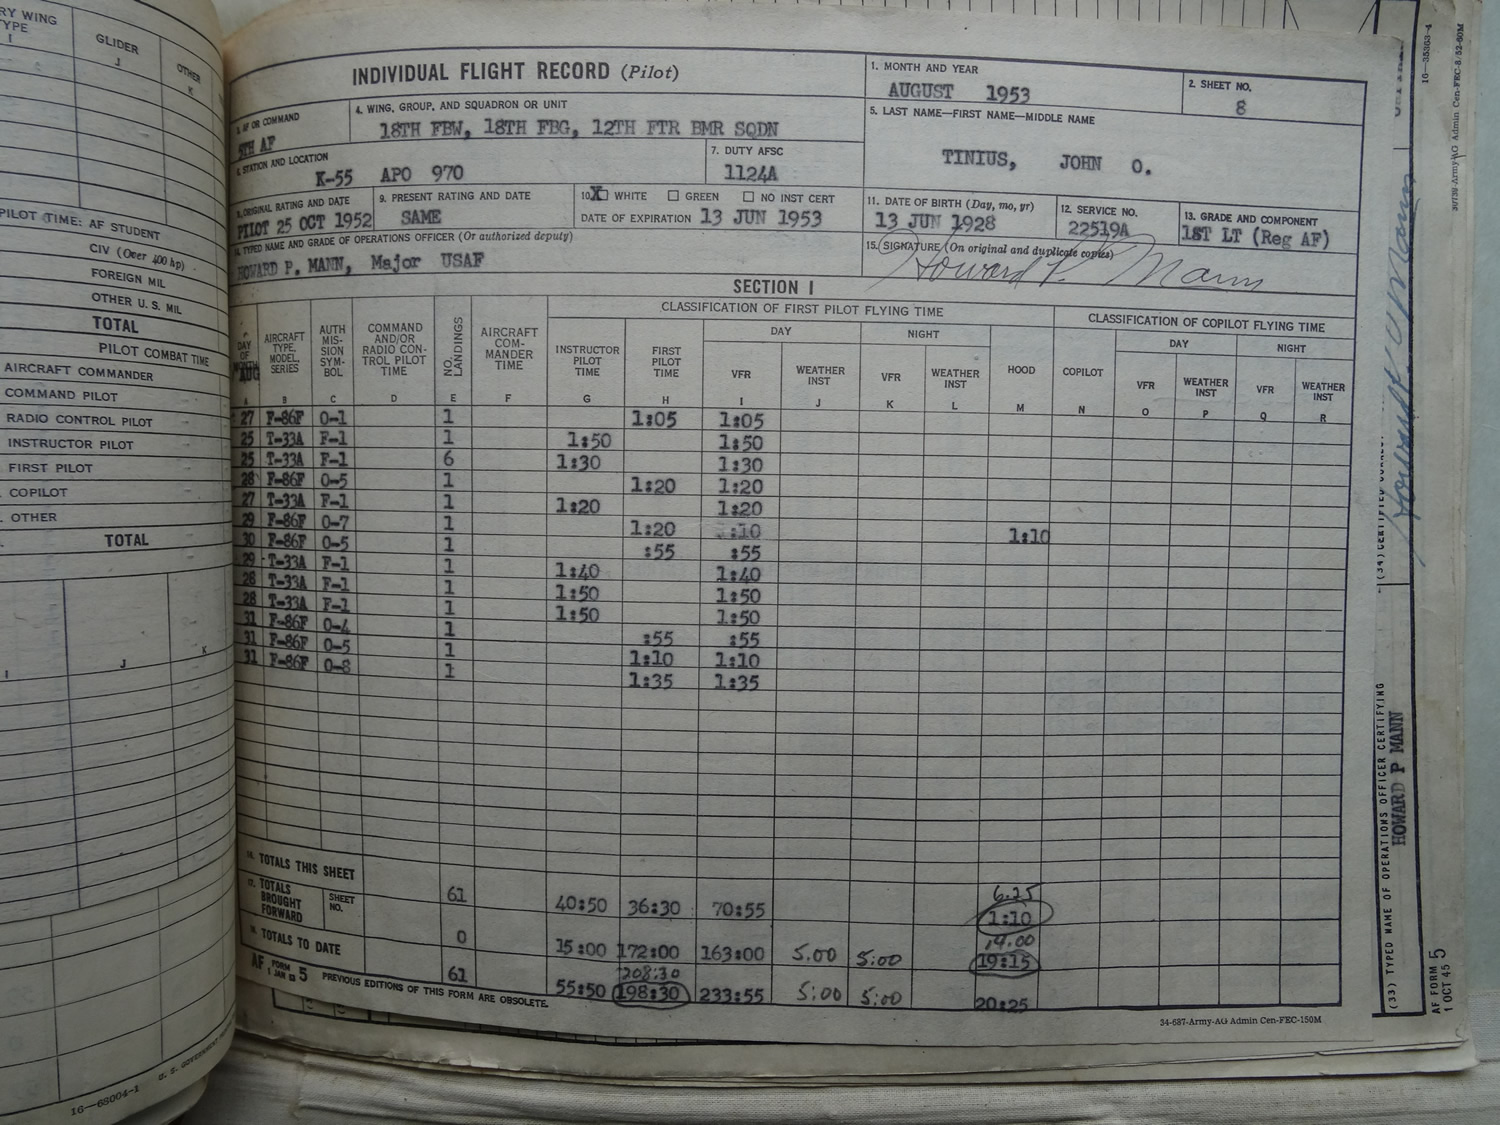 RY WING
TYPE
I
GLIDER
J
OTHER
K
PILOT TIME: AF STUDENT
CIV (Over 400 hp)
FOREIGN MIL
OTHER U. S. MIL
TOTAL
PILOT COMBAT TIME
AIRCRAFT COMMANDER
COMMAND PILOT
RADIO CONTROL PILOT
INSTRUCTOR PILOT
FIRST PILOT
COPILOT
OTHER
TOTAL
J K
16—68004-1
INDIVIDUAL FLIGHT RECORD (Pilot)
1. MONTH AND YEAR
AUGUST 1953
2. SHEET NO.
8
3. AF OR COMMAND
5TH AF
4. WING, GROUP, AND SQUADRON OR UNIT
18TH FBW, 18TH FBG, 12TH FTR BMR SQDN
5. LAST NAME—FIRST NAME—MIDDLE NAME
TINIUS, JOHN O.
6. STATION AND LOCATION
K-55 APO 970
7. DUTY AFSC
1124A
8. ORIGINAL RATING AND DATE
PILOT 25 OCT 1952
9. PRESENT RATING AND DATE
SAME
10. X WHITE GREEN NO INST CERT
DATE OF EXPIRATION 13 JUN 1953
11. DATE OF BIRTH (Day, mo, yr)
13 JUN 1928
12. SERVICE NO.
22519A
13. GRADE AND COMPONENT
1ST LT (Reg AF)
14. TYPED NAME AND GRADE OF OPERATIONS OFFICER (Or authorized deputy)
HOWARD P. MANN, Major USAF
15. SIGNATURE (On original and duplicate copies)
Howard P. Mann
SECTION I
CLASSIFICATION OF FIRST PILOT FLYING TIME
CLASSIFICATION OF COPILOT FLYING TIME
DAY NIGHT DAY NIGHT
DAY OF AUG
AIRCRAFT TYPE, MODEL, SERIES
AUTH MISSION SYMBOL
COMMAND AND/OR RADIO CONTROL PILOT TIME
NO. LANDINGS
AIRCRAFT COMMANDER TIME
INSTRUCTOR PILOT TIME
FIRST PILOT TIME
VFR
WEATHER INST
VFR
WEATHER INST
HOOD
COPILOT
VFR
WEATHER INST
VFR
WEATHER INST
A B C D E F G H I J K L M N O P Q R
27 F-86F O-1 1 1:05 1:05
25 T-33A F-1 1 1:50 1:50
25 T-33A F-1 6 1:30 1:30
28 F-86F O-5 1 1:20 1:20
27 T-33A F-1 1 1:20 1:20
29 F-86F O-7 1 1:20 :10 1:10
30 F-86F O-5 1 :55 :55
29 T-33A F-1 1 1:40 1:40
28 T-33A F-1 1 1:50 1:50
28 T-33A F-1 1 1:50 1:50
31 F-86F O-4 1 :55 :55
31 F-86F O-5 1 1:10 1:10
31 F-86F O-8 1 1:35 1:35
16. TOTALS THIS SHEET 61 40:50 36:30 70:55 6:25 1:10
17. TOTALS BROUGHT FORWARD SHEET NO. 0 15:00 172:00 163:00 5:00 5:00 14.00 19:15
18. TOTALS TO DATE 61 55:50 208:30 198:30 233:55 5:00 5:00 20:25
AF FORM 1 JAN 5 PREVIOUS EDITIONS OF THIS FORM ARE OBSOLETE.
34-687-Army-AG Admin Cen-FEC-150M
(33) TYPED NAME OF OPERATIONS OFFICER CERTIFYING
HOWARD P MANN
(34) CERTIFIED CORRECT
Howard P Mann
AF FORM 5
1 OCT 45
16—35363-4
30739-Army-AG Admin Cen-FEC-8/52-60M